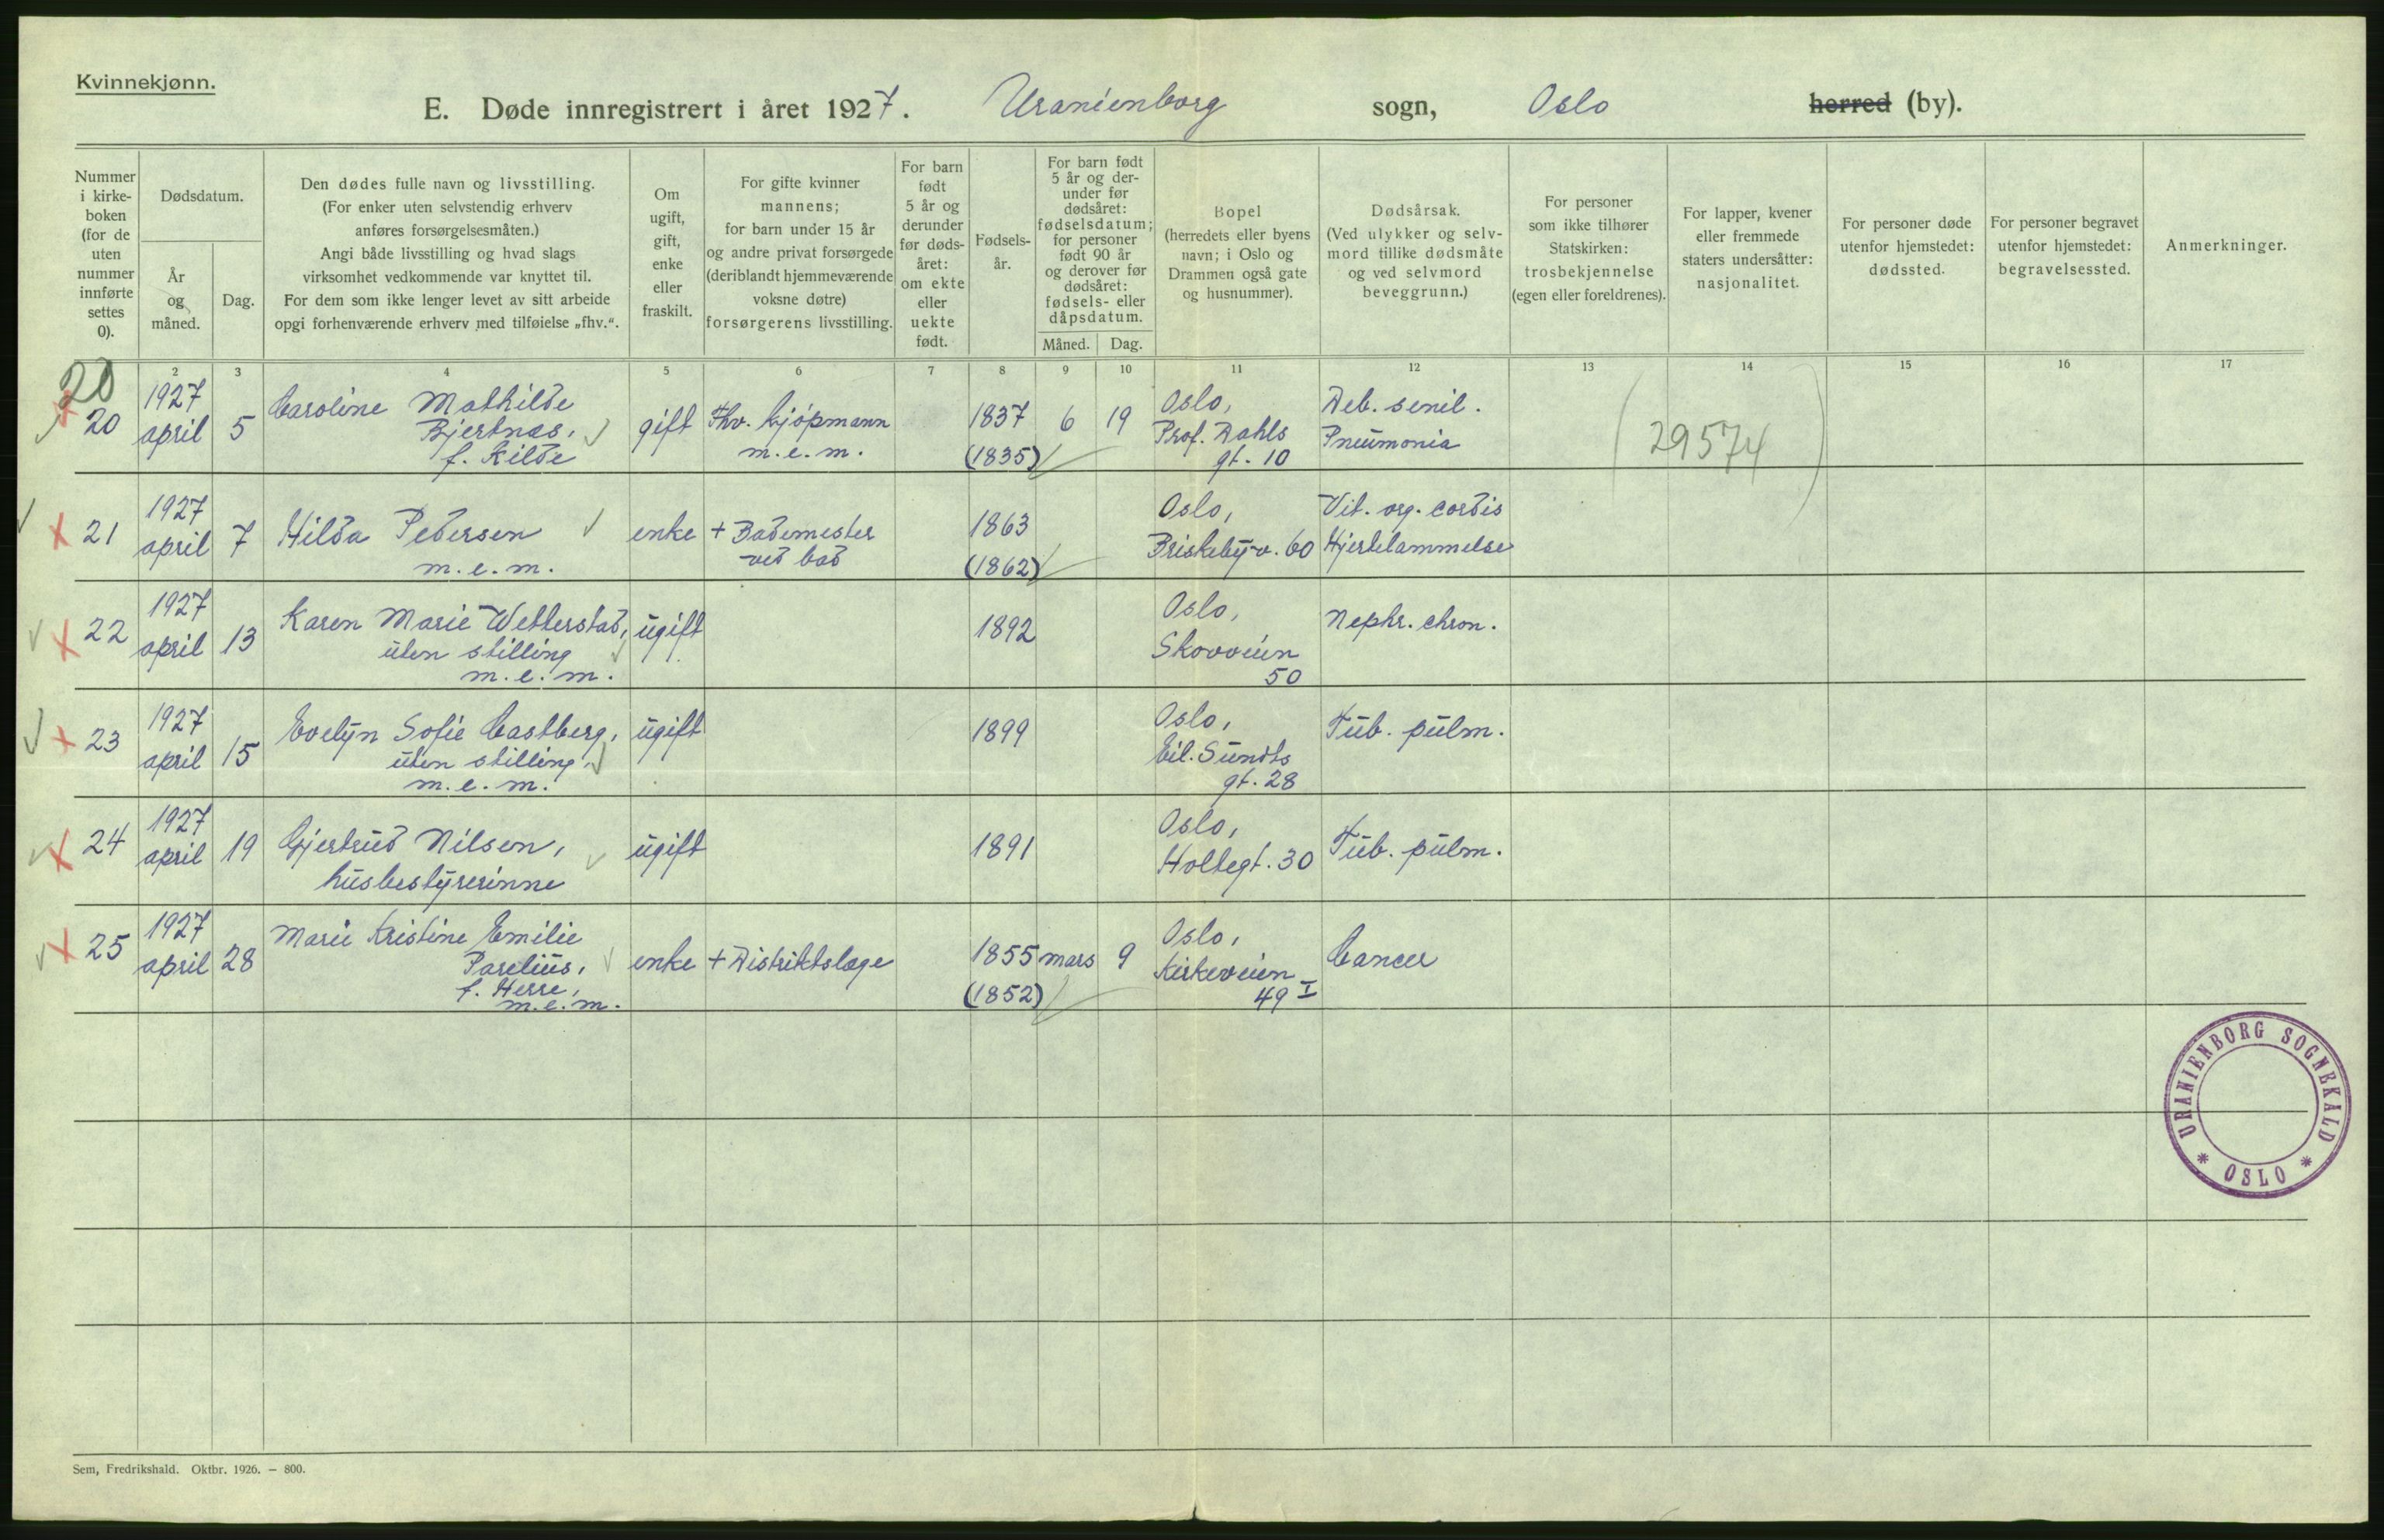 Kvinnekjønn.
E. Døde innregistrert i året 1927. Uranienborg sogn, Oslo herred (by).
Nummer i kirke-boken (for de uten nummer innførte settes 0).
Dødsdatum.
År og måned.
Dag.
Den dødes fulle navn og livsstilling.
(For enker uten selvstendig erhverv
anføres forsørgelsesmåten.)
Angi både livsstilling og hvad slags
virksomhet vedkommende var knyttet til.
For dem som ikke lenger levet av sitt arbeide
opgi forhenværende erhverv med tilføielse „fhv.“.
Om
ugift,
gift,
enke
eller
fraskilt.
For gifte kvinner
mannens;
for barn under 15 år
og andre privat forsørgede
(deriblandt hjemmeværende
voksne døtre)
forsørgerens livsstilling.
For barn
født
5 år og
derunder
før døds-
året:
om ekte
eller
uekte
født.
Fødsels-
år.
For barn født
5 år og der-
under før
dødsåret:
fødselsdatum;
for personer
født 90 år
og derover før
dødsåret:
fødsels- eller
dåpsdatum.
Måned. Dag.
Bopel
(herredets eller byens
navn; i Oslo og
Drammen også gate
og husnummer).
Dødsårsak.
(Ved ulykker og selv-
mord tillike dødsmåte
og ved selvmord
beveggrunn.)
For personer
som ikke tilhører
Statskirken:
trosbekjennelse
(egen eller foreldrenes).
For lapper, kvener
eller fremmede
staters undersåtter:
nasjonalitet.
For personer døde
utenfor hjemstedet:
dødssted.
For personer begravet
utenfor hjemstedet:
begravelsessted.
Anmerkninger.
2 3 4 5 6 7 8 9 10 11 12 13 14 15 16 17
20
20
1927
april
5
Caroline Mathilde
Bjertnæs,
f. Kilde
gift
Fhv. kjøpmann
m.e.m.
1837
(1835)
6
19
Oslo,
Prof. Dahls
gt. 10
Deb. senil.
Pneumonia
(29574)
21
1927
april
7
Hilda Pedersen
m.e.m.
enke
+ Bademester
ved bad
1863
(1862)
Oslo,
Briskebyv. 60
Vit. org. cordis
Hjertelammelse
22
1927
april
13
Karen Marie Wetterstad,
uten stilling
m.e.m.
ugift
1892
Oslo,
Skovveien
50
Nephr. chron.
23
1927
april
15
Evelyn Sofie Castberg,
uten stilling,
m.e.m.
ugift
1899
Oslo,
Eil. Sundts
gt. 28
Tub. pulm.
24
1927
april
19
Gjertrud Nilsen,
husbestyrerinne
ugift
1891
Oslo,
Holtegt. 30
Tub. pulm.
25
1927
april
28
Marie Kristine Emilie
Parelius,
f. Herre,
m.e.m.
enke
+ Distriktslæge
1855
(1852)
mars
9
Oslo,
Kirkeveien
49 I
Cancer
URANIENBORG SOGNEKALD
* OSLO *
Sem, Fredrikshald. Oktbr. 1926. — 800.